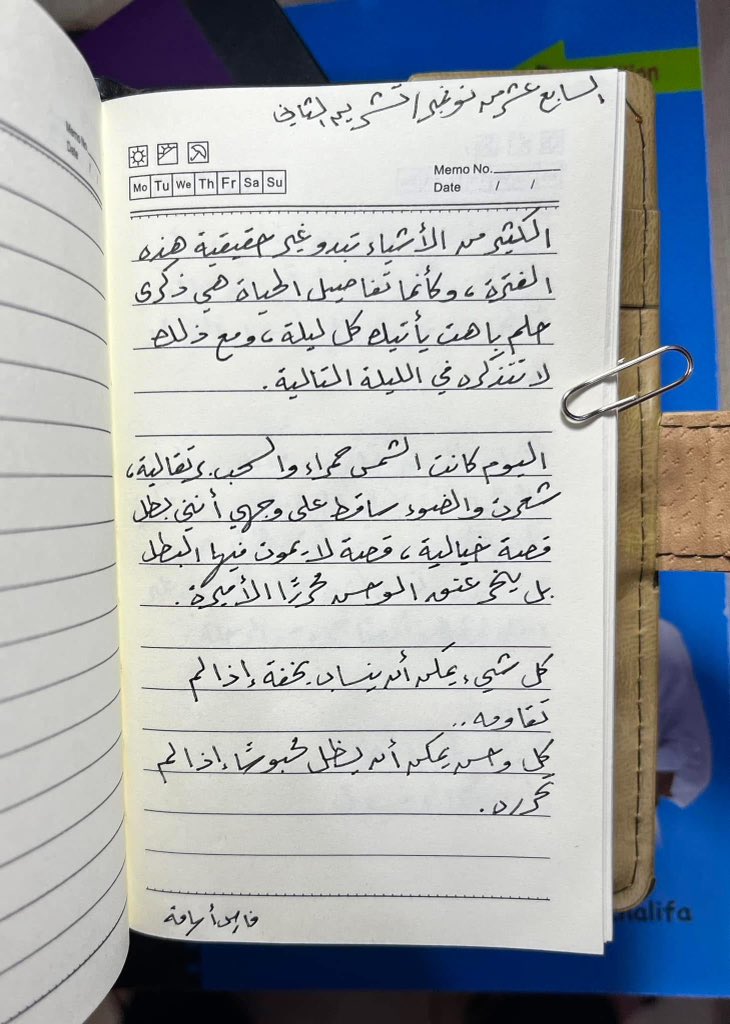 السابع عشر من نوفمبر / تشرين الثاني
Memo No.
Date / /
Mo Tu We Th Fr Sa Su
Memo No.
Date / /
الكثير من الأشياء تبدو غير حقيقية هذه
الفترة، وكأنما تفاصيل الحياة هي ذكرى
حلم باهت يأتيك كل ليلة، ومع ذلك
لا تتذكره في الليلة التالية.
اليوم كانت الشمس حمراء والسحب برتقالية،
شعرت والضوء ساقط على وجهي أنني بطل
قصة خيالية، قصة لا يموت فيها البطل
بل ينحر عنق الوحش محررًا الأميرة.
كل شيء يمكن أن ينساب بخفة إذا لم
تقاومه..
كل وحش يمكن أن يظل محبوسًا إذا لم
تحرره.
فارس أسامة